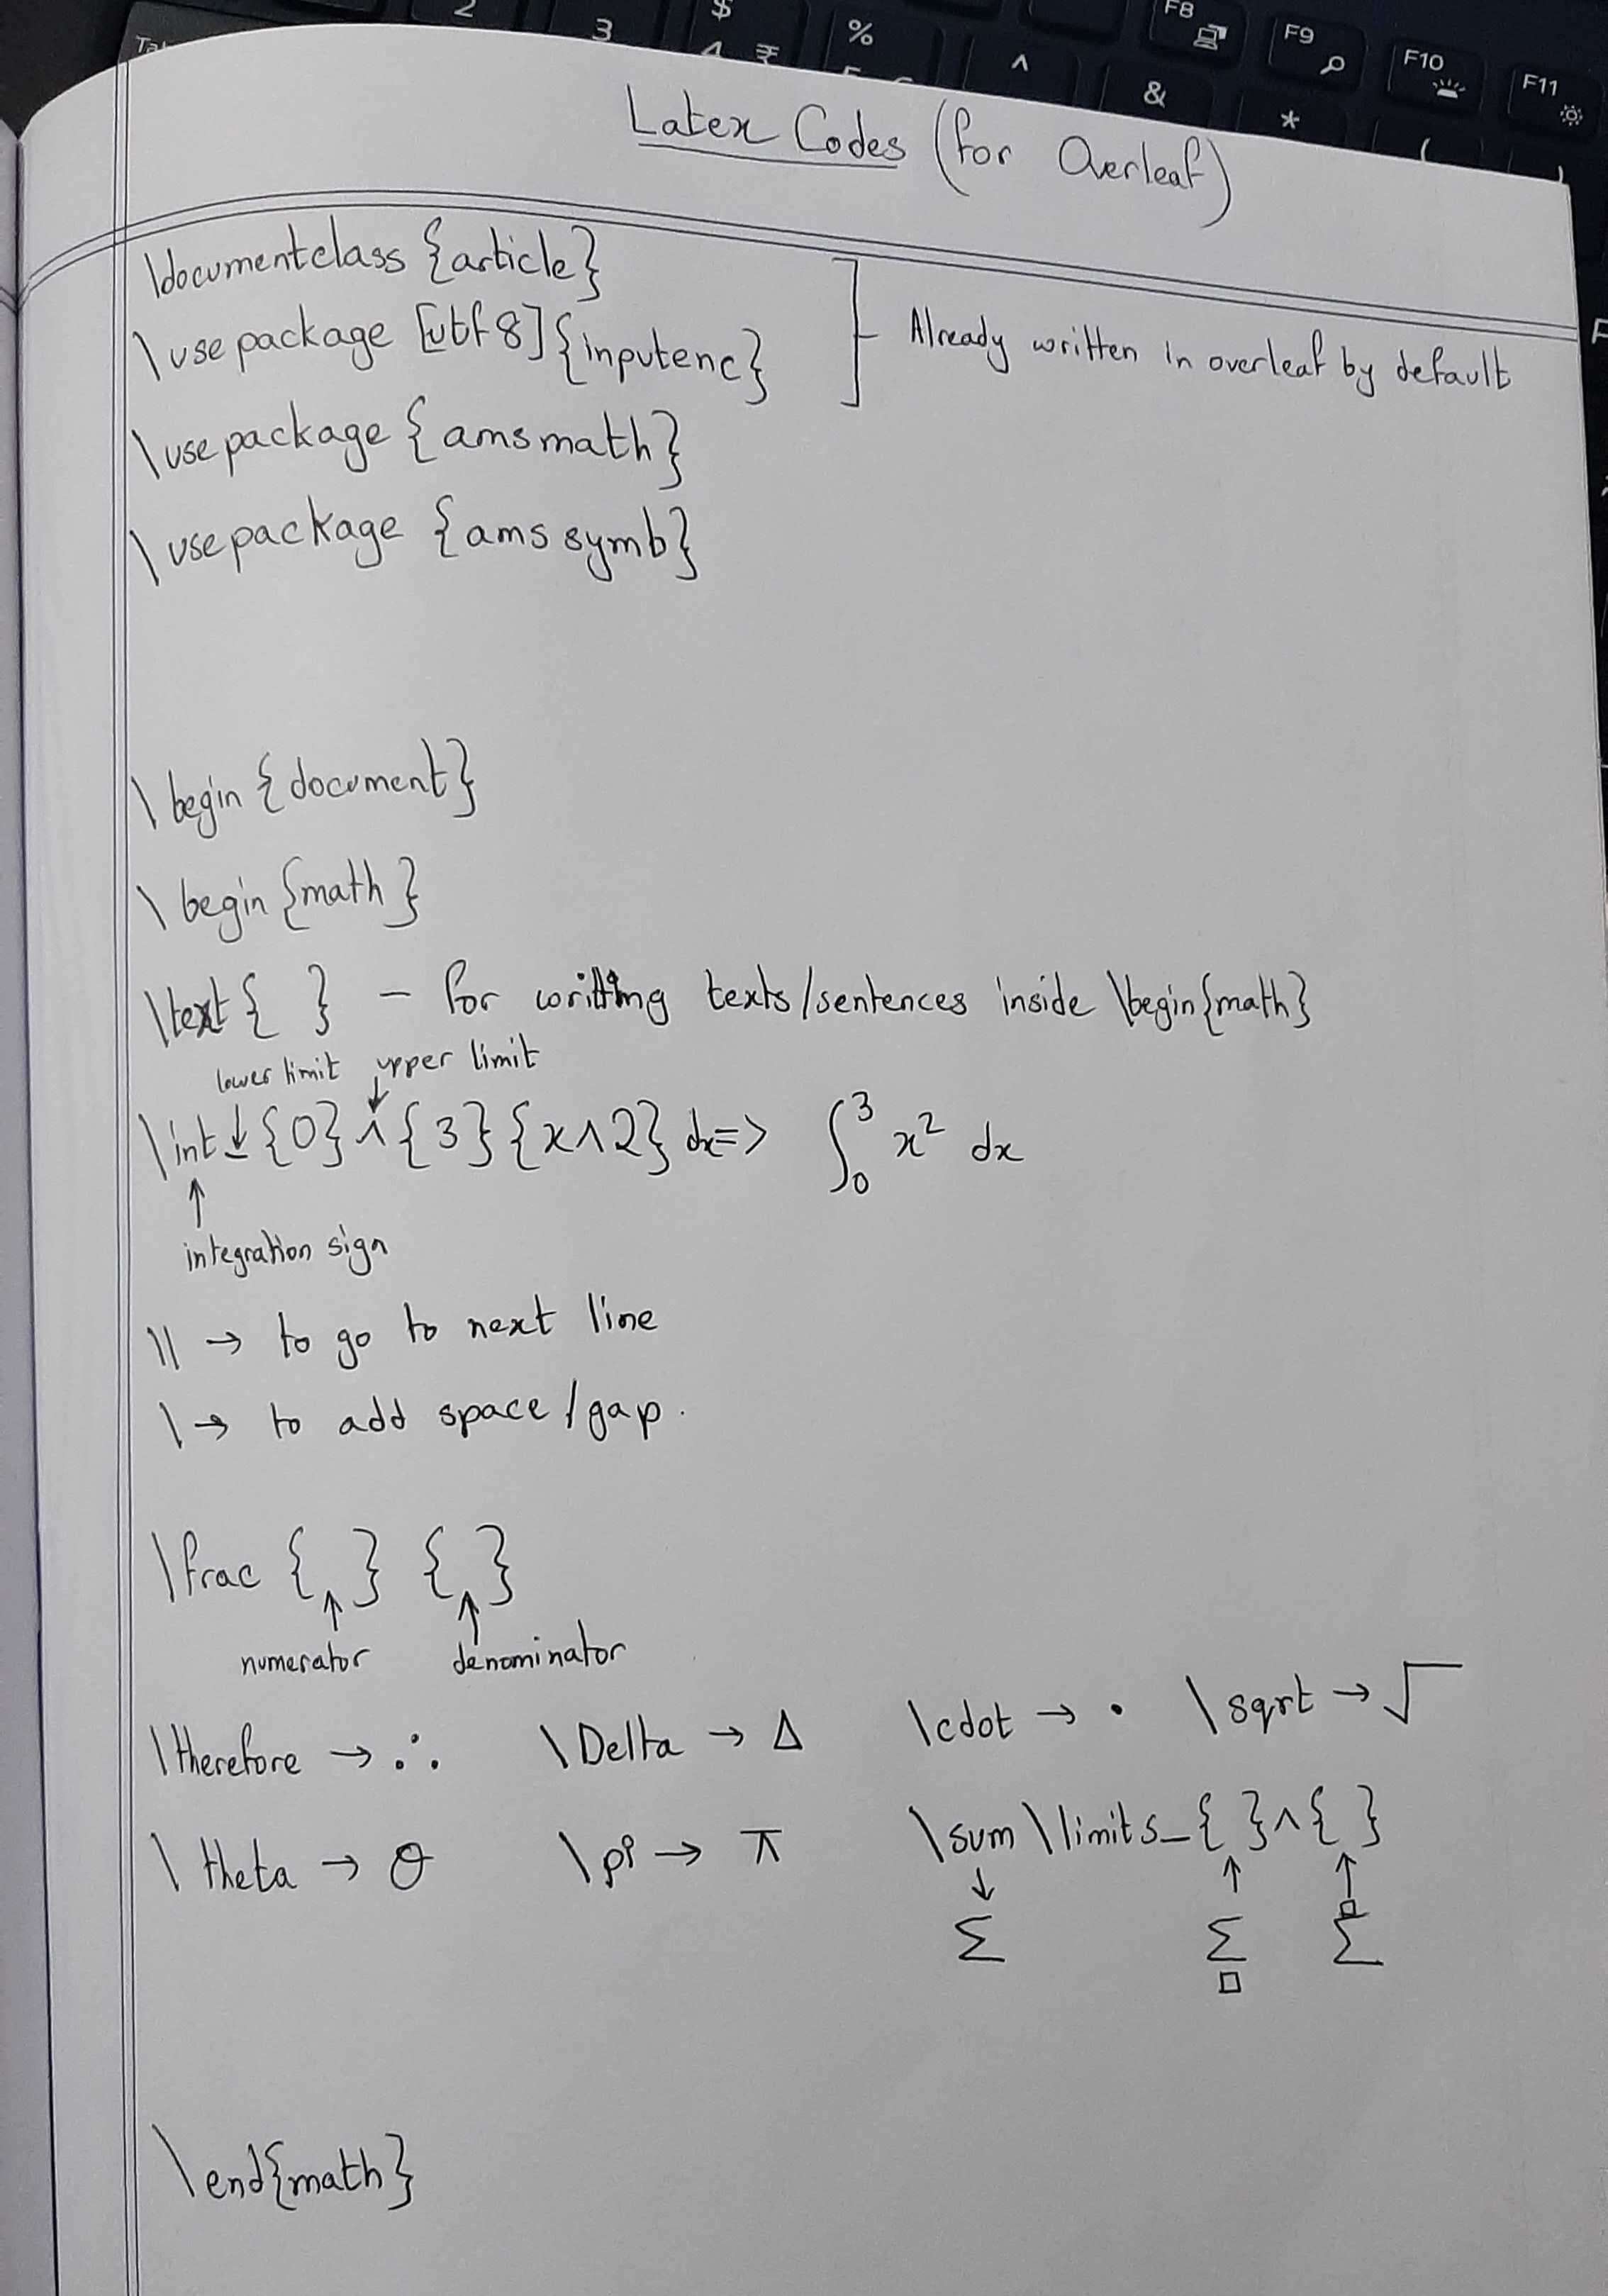 Tab 2 3 $ 4 ₹ % 5 € ^ & * ( ) F8 F9 F10 F11
Latex Codes (for Overleaf)
\documentclass {article}
\usepackage [utf8]{inputenc} Already written in overleaf by default
\usepackage {amsmath}
\usepackage {amssymb}
\begin {document}
\begin {math}
\text{ } - for writting texts/sentences inside \begin{math}
lower limit upper limit
\int_{0}^{3}{x^2} dx => ∫₀³ x² dx
integration sign
\\ → to go to next line
\ → to add space/gap.
\frac { } { }
numerator denominator
\therefore → ∴ \Delta → Δ \cdot → • \sqrt → √
\theta → θ \pi → π \sum\limits_{ }^{ }
Σ Σ Σ
\end{math}